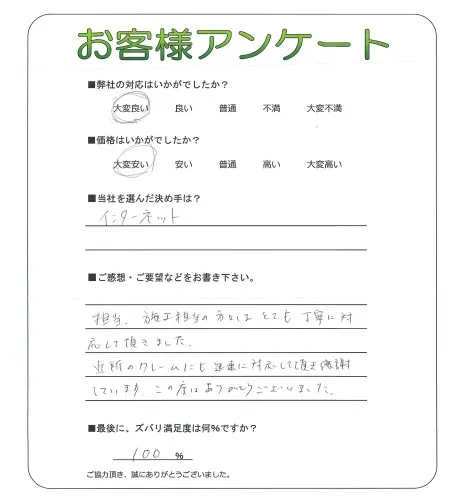 お客様アンケート
■弊社の対応はいかがでしたか？
大変良い 良い 普通 不満 大変不満
■価格はいかがでしたか？
大変安い 安い 普通 高い 大変高い
■当社を選んだ決め手は？
インターネット
■ご感想・ご要望などをお書き下さい。
担当、施工担当の方々は とても 丁寧に対
応して頂きました。
近所のクレームにも 迅速に対応して頂き感謝
しています。この度はありがとうございました。
■最後に、ズバリ満足度は何%ですか？
100 %
ご協力頂き、誠にありがとうございました。